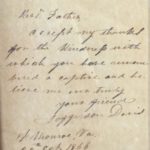 Revd. Father,
accept my thanks
for the kindness with
which you have remem
bered a captive and be
lieve me very truly
your friend
Jefferson Davis
Ft Monroe, Va.
1866